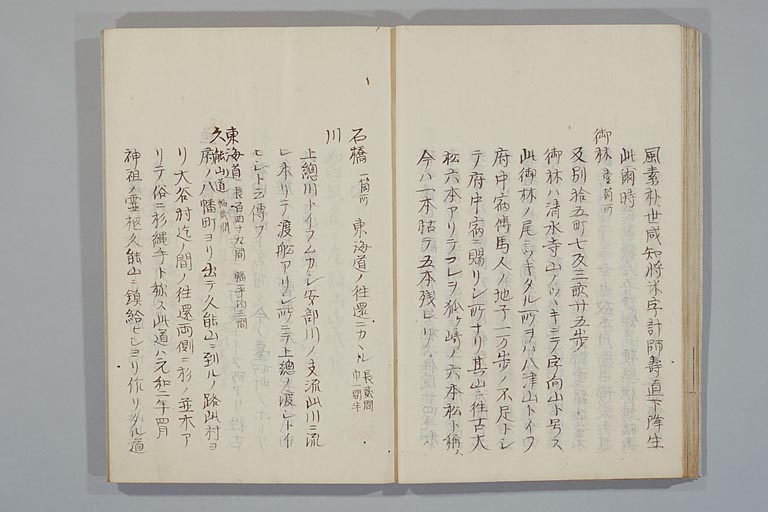 風素秋世咸知将氷字計師壽直下降生
此爾時
御林 壹箇所
反別拾五町七反三畝廿五歩
御林ハ清水寺山ノツヽキニテ字向山ト号ス
此御林ノ尾ニツキタル所ヲハ八津山トイフ
府中宿傳馬人ノ地子一万歩ノ不足トシ
テ府中宿ニ賜リシ所ナリ其山ニ往古大
松六本アリテコレヲ狐ヶ崎ノ六本松ト稱ス
今ハ一本枯テ五本残レリ
石橋 一箇所 東海道ノ往還ニカヽル 長貳間 巾一間半
川
上總川トイフムカシ安部川ノ支流此川ニ流
レ来リテ渡船アリシ所ニテ上總ノ渡シトイ
ヒシト云傳フ
東海道 長百四十九間 幅平均三間
久能山道 幅貳間
府ノ八幡町ヨリ出テ久能山ニ到ルノ路此村ヨ
リ大谷村迄ノ間ノ往還両側ニ杉ノ並木ア
リテ俗ニ杉縄手ト称ス此道ハ元和二年四月
神祖ノ霊柩久能山ニ鎮給ヒシヨリ作リタル道